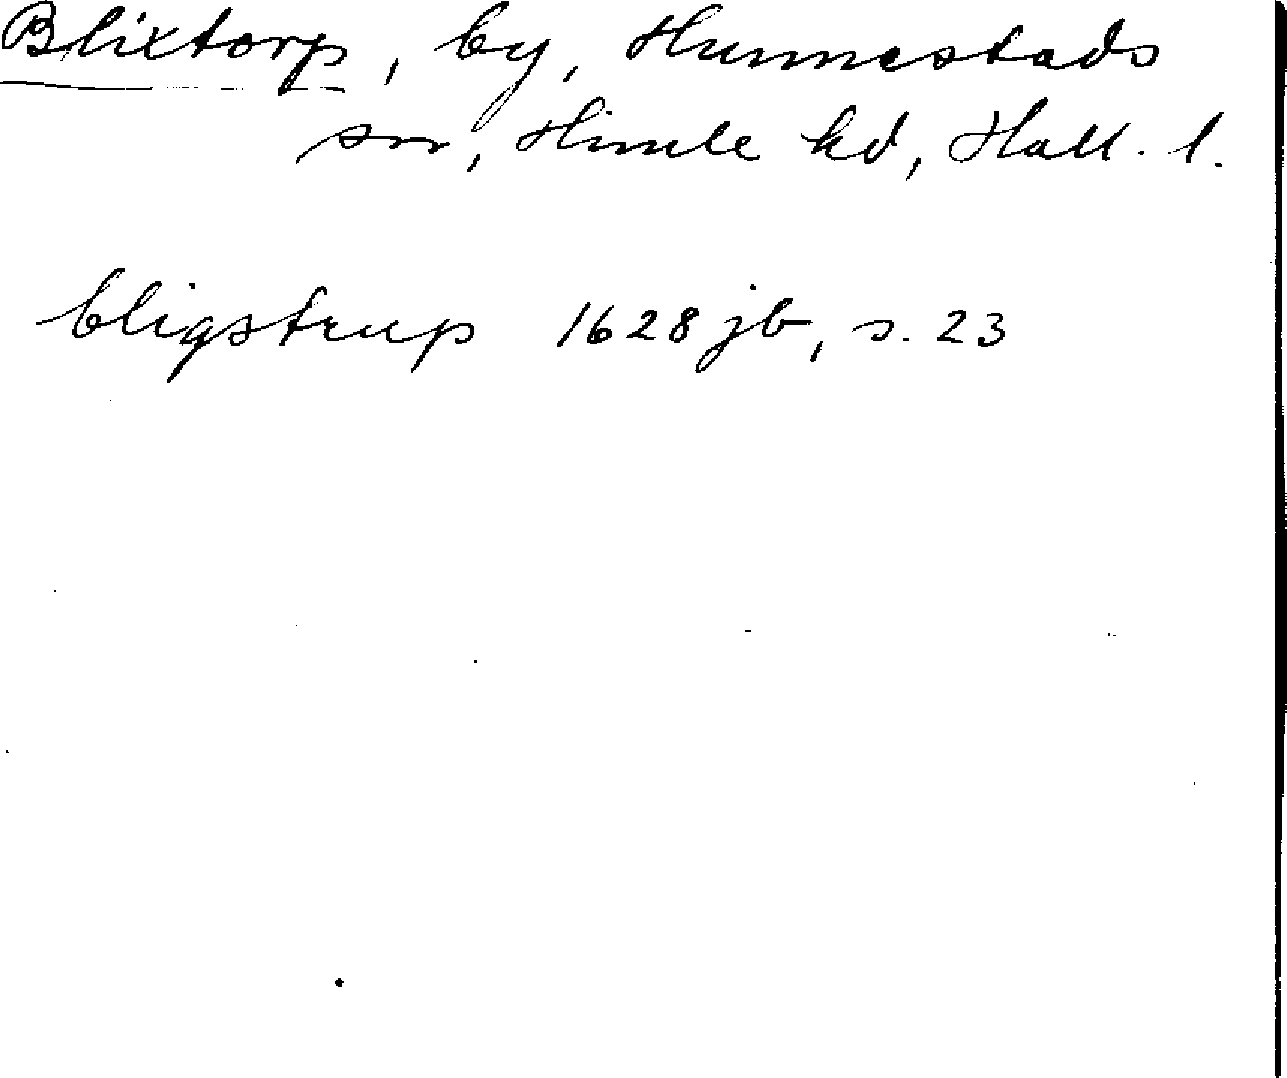 Blixtorp, by, Hunnestads
sn, Himle hd, Hall. l.
bligstrup 1628 jb, s. 23